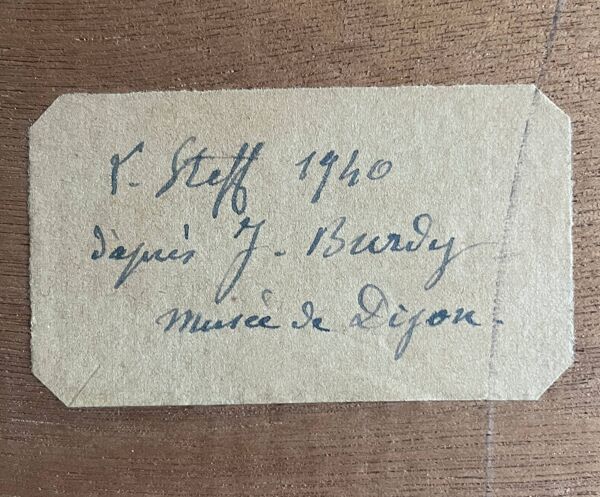 Steff 1940
d'après J. Burdy
musée de Dijon.